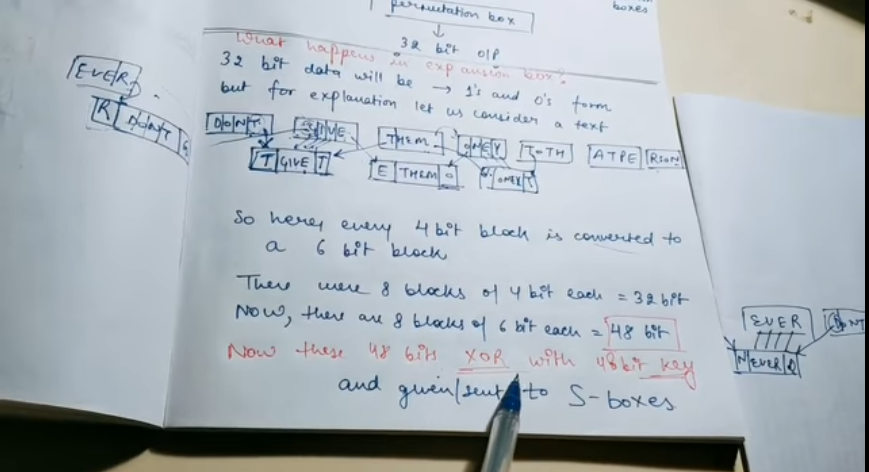 permutation box
boxes
32 bit O/P
What happens in expansion box?
32 bit data will be → 1's and 0's form
but for explanation let us consider a text
EVER
R DONT G
DONT GIVE THEM ONEY TOTH ATPE RSON
T GIVE T
E THEM O
ONEY T
So here, every 4 bit block is converted to
a 6 bit block
There were 8 blocks of 4 bit each = 32 bit
Now, there are 8 blocks of 6 bit each = 48 bit
Now these 48 bits XOR with 48 bit key
and given/sent to S-boxes
EVER
DONT
N EVER D